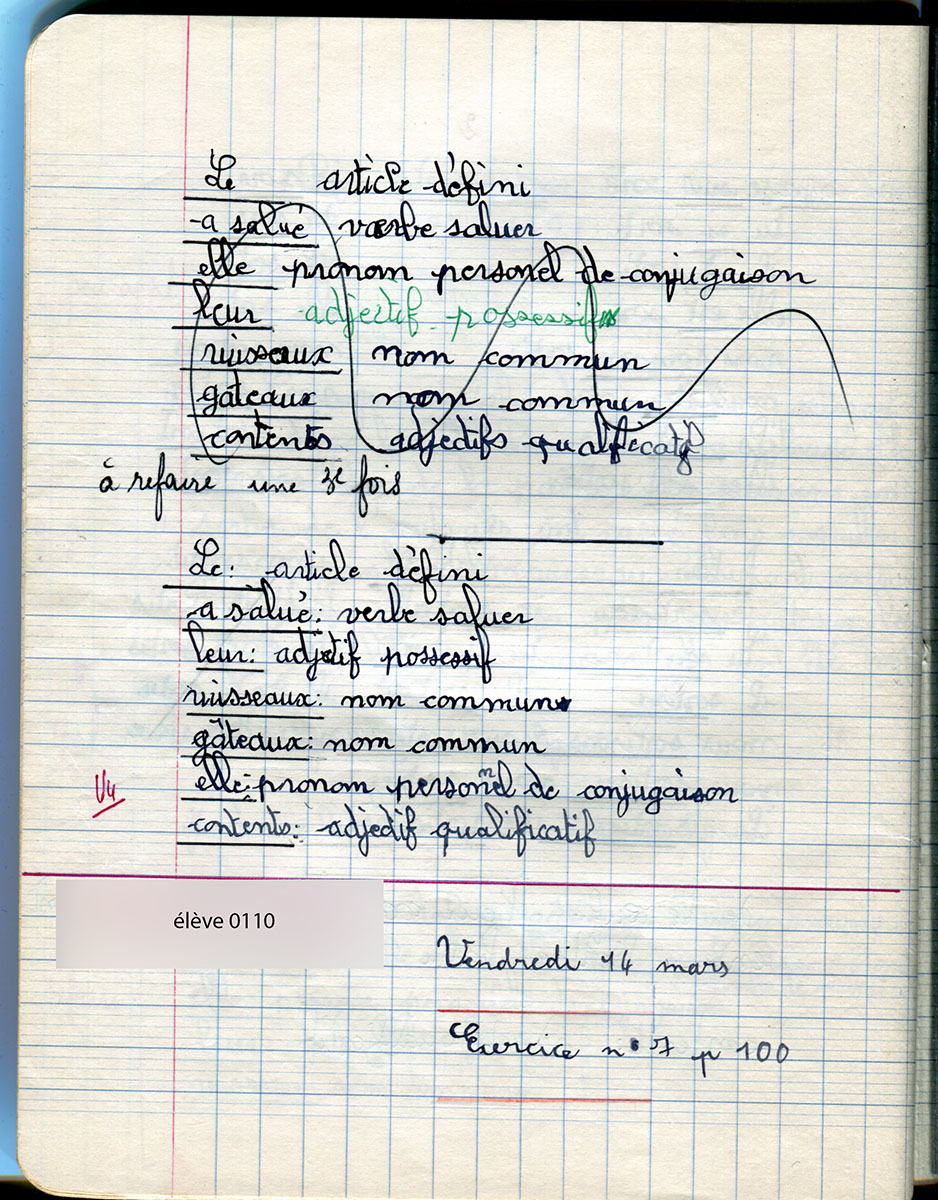 Le article défini
a salué verbe saluer
elle pronom personel de conjugaison
leur adjectif possessif
ruisseaux nom commun
gâteaux nom commun
contents adjectifs qualificatif
à refaire une 3e fois
Le : article défini
a salué : verbe saluer
leur : adjetif possessif
ruisseaux : nom commun
gâteaux : nom commun
elle : pronom personnel de conjugaison
contents : adjedif qualificatif
élève 0110
Vendredi 14 mars
Exercice n° 7 p 100